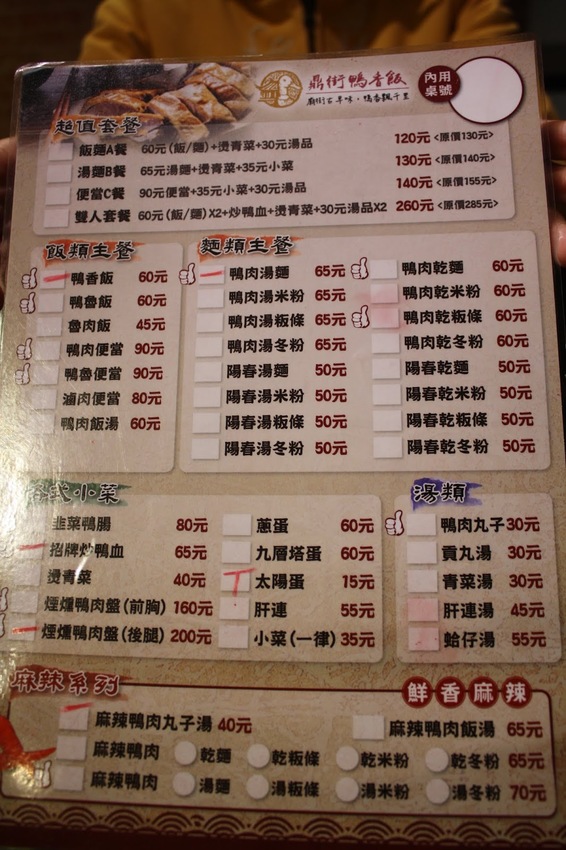 鼎街鴨香飯
廟街古早味・鴨香飄千里
內用桌號
超值套餐
飯麵A餐 60元(飯/麵)+燙青菜+30元湯品 120元 <原價130元>
湯麵B餐 65元湯麵+燙青菜+35元小菜 130元 <原價140元>
便當C餐 90元便當+35元小菜+30元湯品 140元 <原價155元>
雙人套餐 60元(飯/麵)X2+炒鴨血+燙青菜+30元湯品X2 260元 <原價285元>
飯類主餐
鴨香飯 60元
鴨魯飯 60元
魯肉飯 45元
鴨肉便當 90元
鴨魯便當 90元
滷肉便當 80元
鴨肉飯湯 60元
麵類主餐
鴨肉湯麵 65元 鴨肉乾麵 60元
鴨肉湯米粉 65元 鴨肉乾米粉 60元
鴨肉湯粄條 65元 鴨肉乾粄條 60元
鴨肉湯冬粉 65元 鴨肉乾冬粉 60元
陽春湯麵 50元 陽春乾麵 50元
陽春湯米粉 50元 陽春乾米粉 50元
陽春湯粄條 50元 陽春乾粄條 50元
陽春湯冬粉 50元 陽春乾冬粉 50元
式小菜
韭菜鴨腸 80元 蔥蛋 60元
招牌炒鴨血 65元 九層塔蛋 60元
燙青菜 40元 太陽蛋 15元
煙燻鴨肉盤(前胸) 160元 肝連 55元
煙燻鴨肉盤(後腿) 200元 小菜(一律) 35元
湯類
鴨肉丸子 30元
貢丸湯 30元
青菜湯 30元
肝連湯 45元
蛤仔湯 55元
麻辣系列
鮮香麻辣
麻辣鴨肉丸子湯 40元 麻辣鴨肉飯湯 65元
麻辣鴨肉 乾麵 乾粄條 乾米粉 乾冬粉 65元
麻辣鴨肉 湯麵 湯粄條 湯米粉 湯冬粉 70元